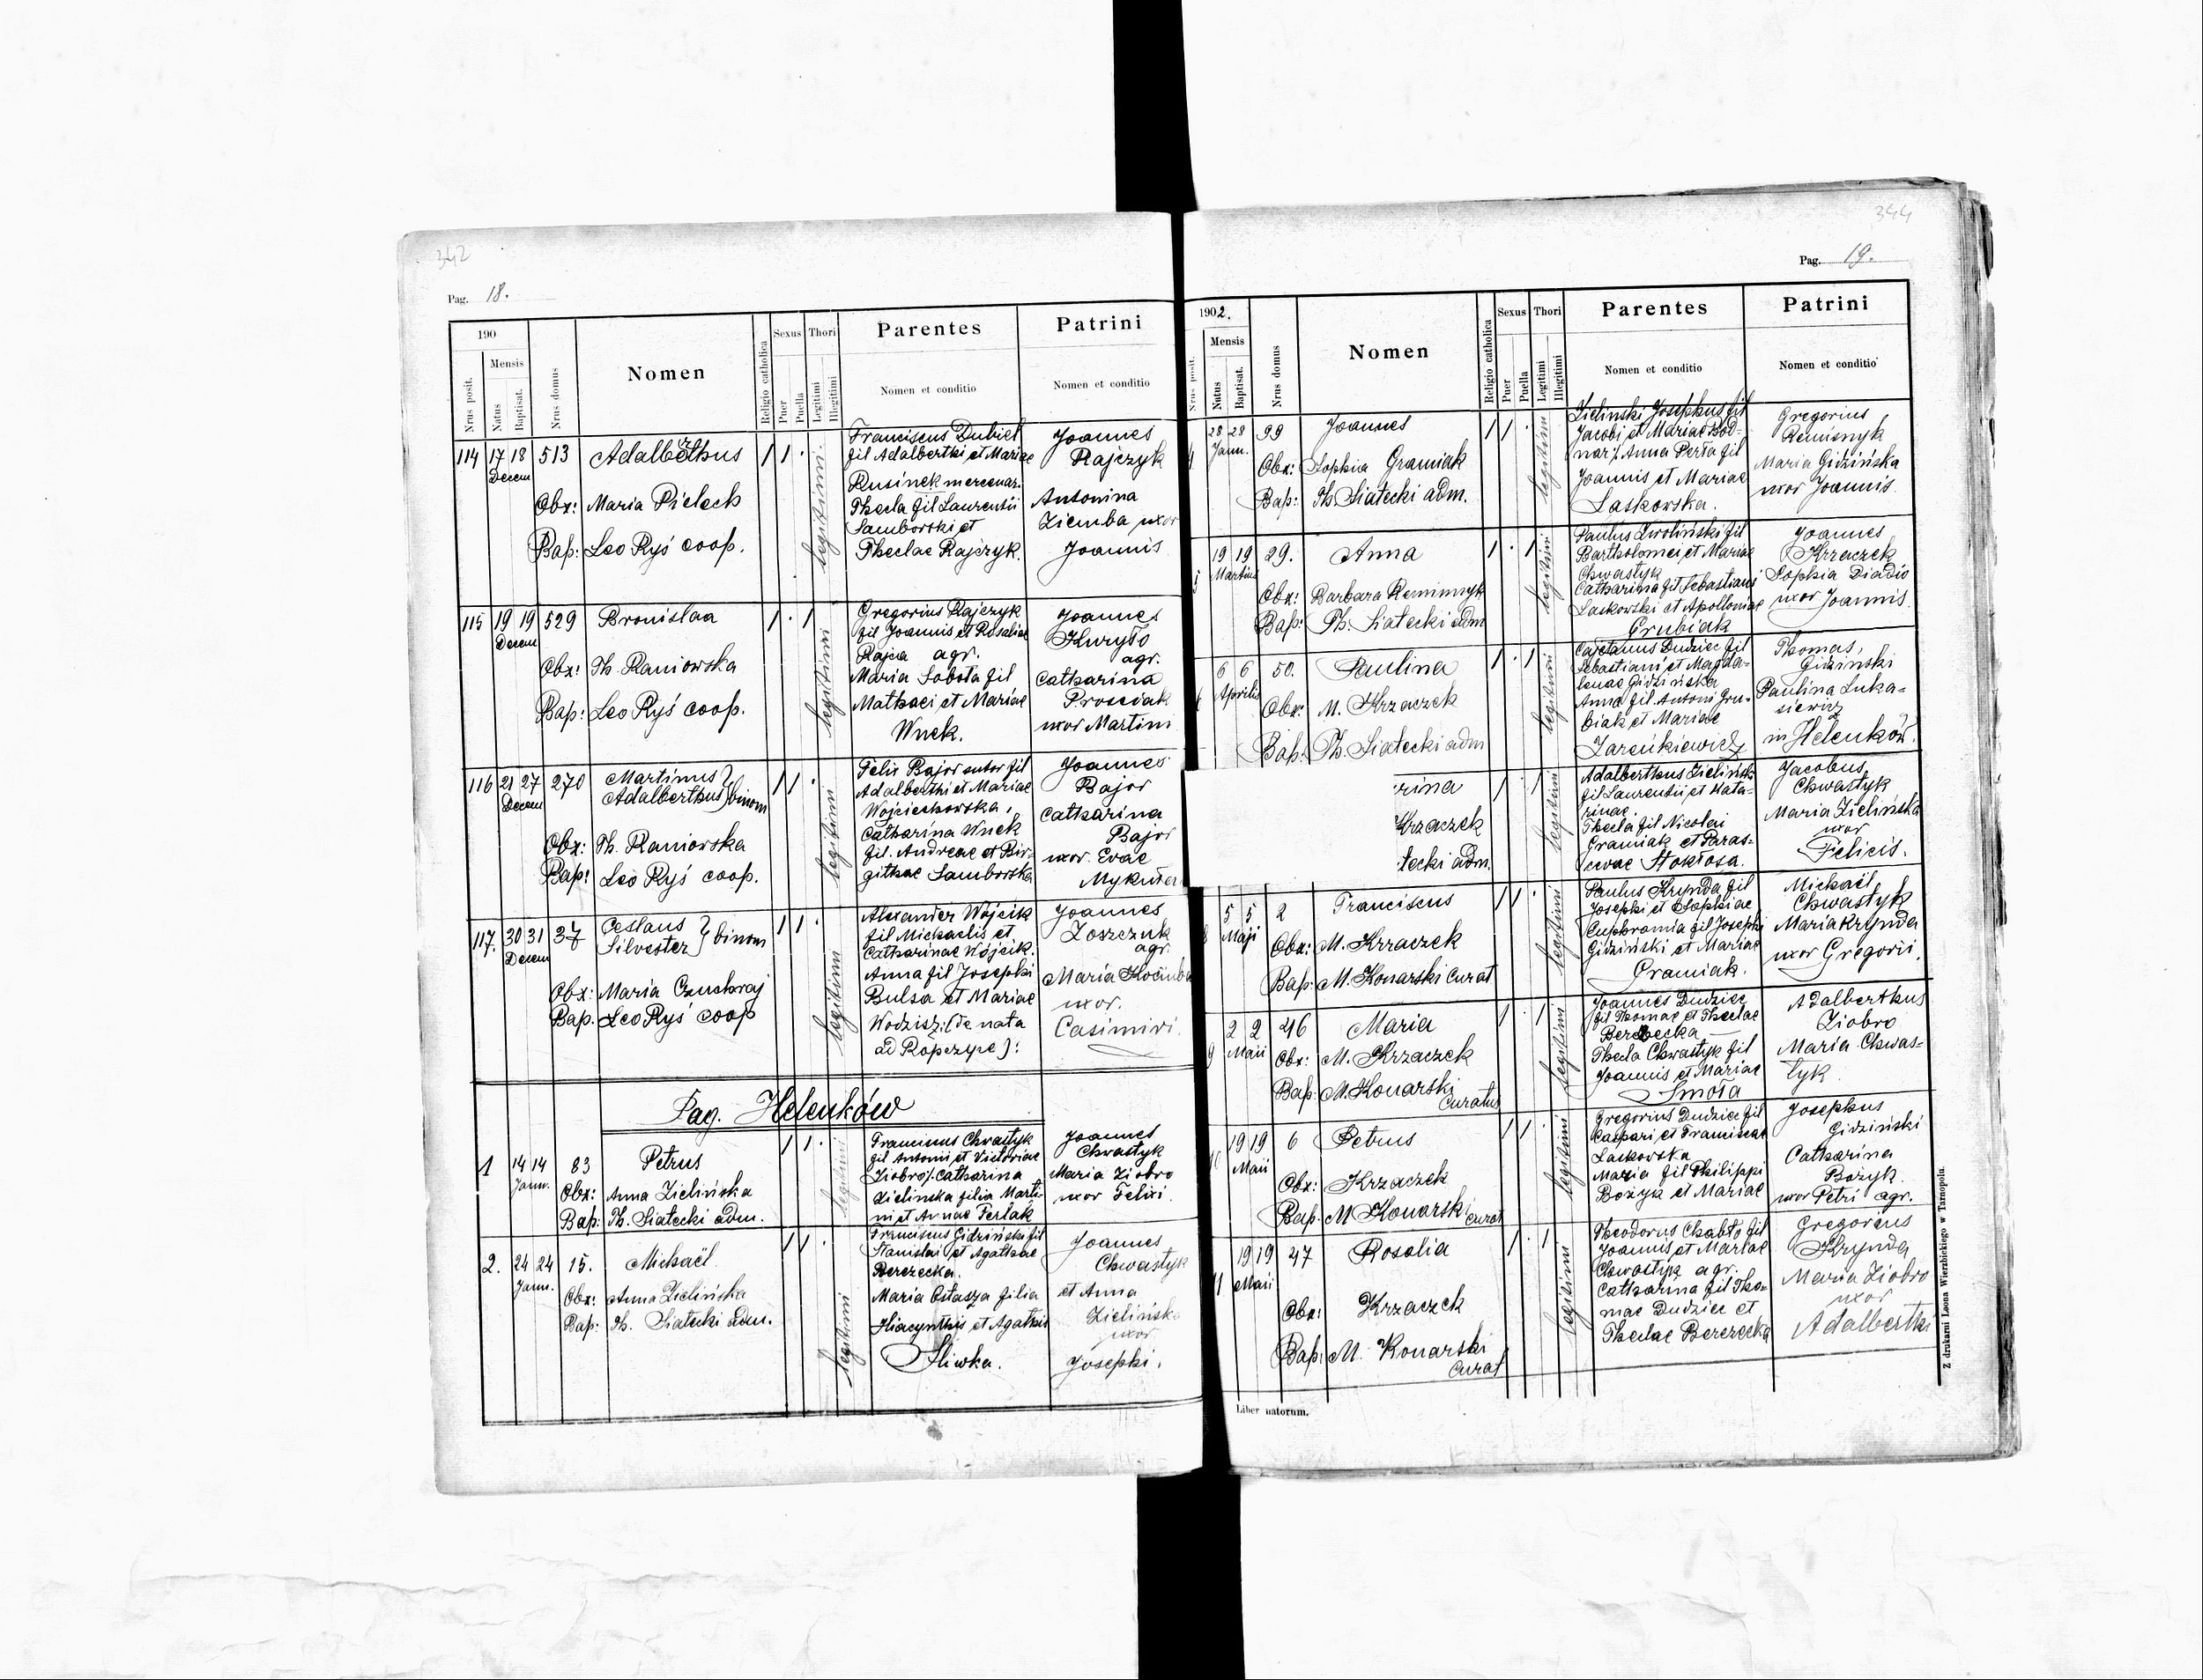 342
Pag. 18.
190
Nrus posit.
Mensis
Natus
Baptisat.
Nrus domus
Nomen
Religio catholica
Sexus
Puer
Puella
Thori
Legitimi
Illegitimi
Parentes
Nomen et conditio
Patrini
Nomen et conditio
114 17 18 513 Adalberthus 1 1 .
Decem
Obx: Maria Pieleck
Bap: Leo Ryś coop.
legitimi
Franciscus Dubiel
fil Adalberthi et Mariae
Rusinek mercenar.
Thecla fil Laurentii
Samborski et
Theclae Rajczyk.
Joannes
Rajczyk
Antonina
Ziemba uxor
Joannis
115 19 19 529 Bronislaa 1 . 1
Decem
Obx: Th. Raniowska
Bap: Leo Ryś coop.
legitimi
Gregorius Rajczyk
fil Joannis et Rosaliae
Rajca agr.
Maria Sobota fil
Mathaei et Mariae
Wnek.
Joannes
Kuryło
agr.
Catharina
Prosciak
uxor Martini
116 21 27 270 Martinus
Adalberthus } binom 1 1 .
Decem
Obx: Th. Raniowska
Bap: Leo Ryś coop.
legitimi
Felix Bajor sutor fil
Adalberthi et Mariae
Wojciechowska,
Catharina Wnek
fil. Andreae et Bir-
githae Samborska
Joannes
Bajor
Catharina
Bajor
uxor. Evae
117. 30 31 37 Ceslaus
Silvester } binom 1 1 .
Decem
Obx: Maria Czuchraj
Bap. Leo Ryś coop
legitimi
Alexander Wójcik
fil Michaelis et
Catharinae Wójcik.
Anna fil Josephi
Bulsa et Mariae
Wodzisz: (de nata
ad Ropczyce):
Joannes
Zoszczuk
agr.
Maria
uxor.
Casimiri.
Pag. Helenków
1 14 14 83 Petrus 1 1 .
Jann.
Obx: Anna Zielińska
Bap: Th. Siatecki adm.
legitimi
Franciscus Chwastyk
fil Antonii et Victoriae
Ziobro/. Catharina
Zielinska filia Marti-
ni et Annae Perlak
Joannes
Chwastyk
Maria Ziobro
uxor Felixi.
2. 24 24 15. Michaël 1 1 .
Jann.
Obx: Anna Zielińska
Bap: Th. Siatecki adm.
legitimi
Franciscus Gidziński fil
Stanislai et Agathae
Berezecka.
Maria Ostasza filia
Hiacynthis et Agathis
Śliwka.
Joannes
Chwastyk
et Anna
Zielinsk
uxor
Josephi.
344
Pag. 19.
1902.
Nrus posit.
Mensis
Natus
Baptisat.
Nrus domus
Nomen
Religio catholica
Sexus
Puer
Puella
Thori
Legitimi
Illegitimi
Parentes
Nomen et conditio
Patrini
Nomen et conditio
28 28 99 Joannes 1 1 .
Jann.
Obx: Sophia Gramiak
Bap: Th. Siatecki adm.
legitimi
Zielinski Josephus fil
Jacobi et Mariae Bod-
nar/. Anna Perła fil
Joannis et Mariae
Laskowska.
Gregorius
Remisnyk
Maria Gidzińska
uxor Joannis.
5 19 19 29. Anna 1 . 1
Martius
Obx: Barbara Remisnyk
Bap: Th. Siatecki adm
legitimi
Paulus Zwoliński fil
Bartholomei et Mariae
Chwastyk
Catharina fil Sebastiani
Laskowski et Apolloniae
Grubiak
Joannes
Krzaczek
Sophia Diadio
uxor Joannis.
6 6 50. Paulina 1 . 1
Aprilis
Obx: M. Krzaczek
Bap: Th. Siatecki adm
legitimi
Cajetanus Dudziec fil
Sebastiani et Magda-
lenae Gidzińska
Anna fil. Antoni Gru-
biak et Mariae
Jareńkiewicz
Thomas,
Gidzinski
Paulina Luka-
siewicz
in Helenków.
rina 1 . 1
Krzaczek
tecki adm.
legitimi
Adalberthus Zieliński
fil Laurentii et Kata-
rinae.
Thecla fil Nicolai
Gramiak et Paras-
cevae Stokłosa.
Jacobus,
Chwastyk
Maria Zielińska
uxor
Felicis.
5 5 2 Franciscus 1 1 .
Maji
Obx: M. Krzaczek
Bap: M. Konarski Curat
legitimi
Paulus Krynda fil
Josephi et Sophiae
Euphromia fil Josephi
Gidziński et Mariae
Gramiak.
Michaël,
Chwastyk
Maria Krynda
uxor Gregorii.
9 2 2 46 Maria 1 . 1
Maii
Obx: M. Krzaczek
Bap: M. Konarski
Curatus
legitimi
Joannes Dudziec
fil Thomae et Theclae
Berezecka
Thecla Chwastyk fil
Joannis et Mariae
Smoła
Adalberthus
Ziobro
Maria Chwas-
tyk.
10 19 19 6 Petrus 1 1 .
Maii
Obx: Krzaczek
Bap. M Konarski Curat
legitimi
Gregorius Dudziec fil
Caspari et Franciscae
Laskovska
Maria fil Philippi
Bożyk et Mariae
Josephus
Gidziński
Catharina
Bożyk.
uxor Petri agr.
11 19 19 47 Rosalia 1 . 1
Maii
Obx: Krzaczek
Bap: M. Konarski
Curat
legitimi
Theodorus Chabło fil
Joannis et Mariae
Chwastyk agr.
Catharina fil Tho-
mae Dudziec et
Theclae Berezecka
Gregorius
Krynda
Maria Ziobro
uxor
Adalberthi
Liber natorum.
Z drukarni Leona Wierzbickiego w Tarnopolu.